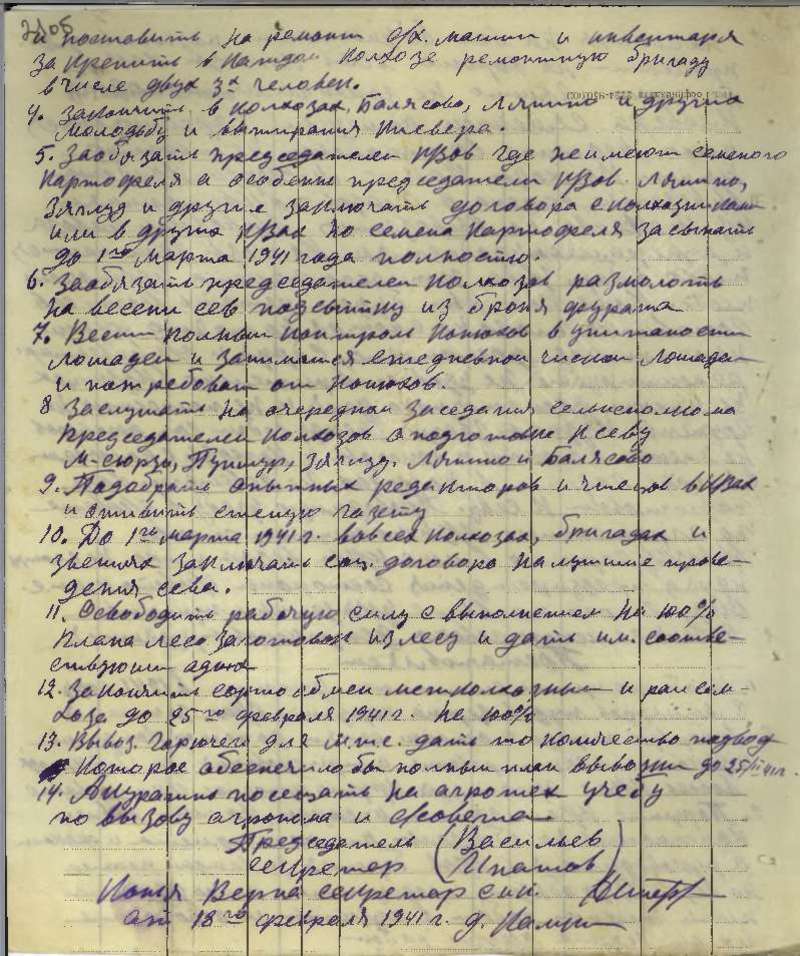 и поставить на ремонт с/х. машин и инвентаря
закрепить в каждом колхозе ремонтную бригаду
в числе двух 3х человек.
4. Закончить в колхозах, Балясово, Ляпино и других
молодьбу и вытирания клевера.
5. Заобязать председателей к/зов где не имеют семеного
картофеля а особенно председатели к/зов Ляпино,
и другие заключать договора с колхозниками
или в других к/зах по семена картофеля засыпать
до 1го марта 1941 года полностью.
6. Заобязать председателей колхозов размолоть
на весени сев подсыпку из броня фуража
7. Вести полный контроль конюхов в упитаности
лошадей и заниматся ежедневной чисткой лошадей
и потребовать от конюхов.
8 Заслушать на очередном заседания сельисполкома
председателей колхозов о подготовке к севу
Ляпино и Балясово
9. Подобрать опытных редакторов и чтецов в к/зах
и оживить стеную газету
10. До 1го марта 1941 г. во всех колхозах, бригадах и
звениях заключать соц. договора на лучшие прове-
дения сева.
11. Освободить рабочую силу с выполнением на 100%
плана лесозаготовок из лесу и дать им. соотве-
ствующий
12. Закончить сортообмен межколхозный и
до 25го февраля 1941 г. на 100%
13. Вывоз. горючего для м.т.с. дать то количество подвод
Которое обеспечило бы полный план вывозки до 25/II 41 г.
14. Акуратно посещать на агротех учебу
по вызову агронома и с/совета
Председатель (Васильев
секретар Ипатов)
Копия Верна секретар с.и.к.
от 18го февраля 1941 г. д.